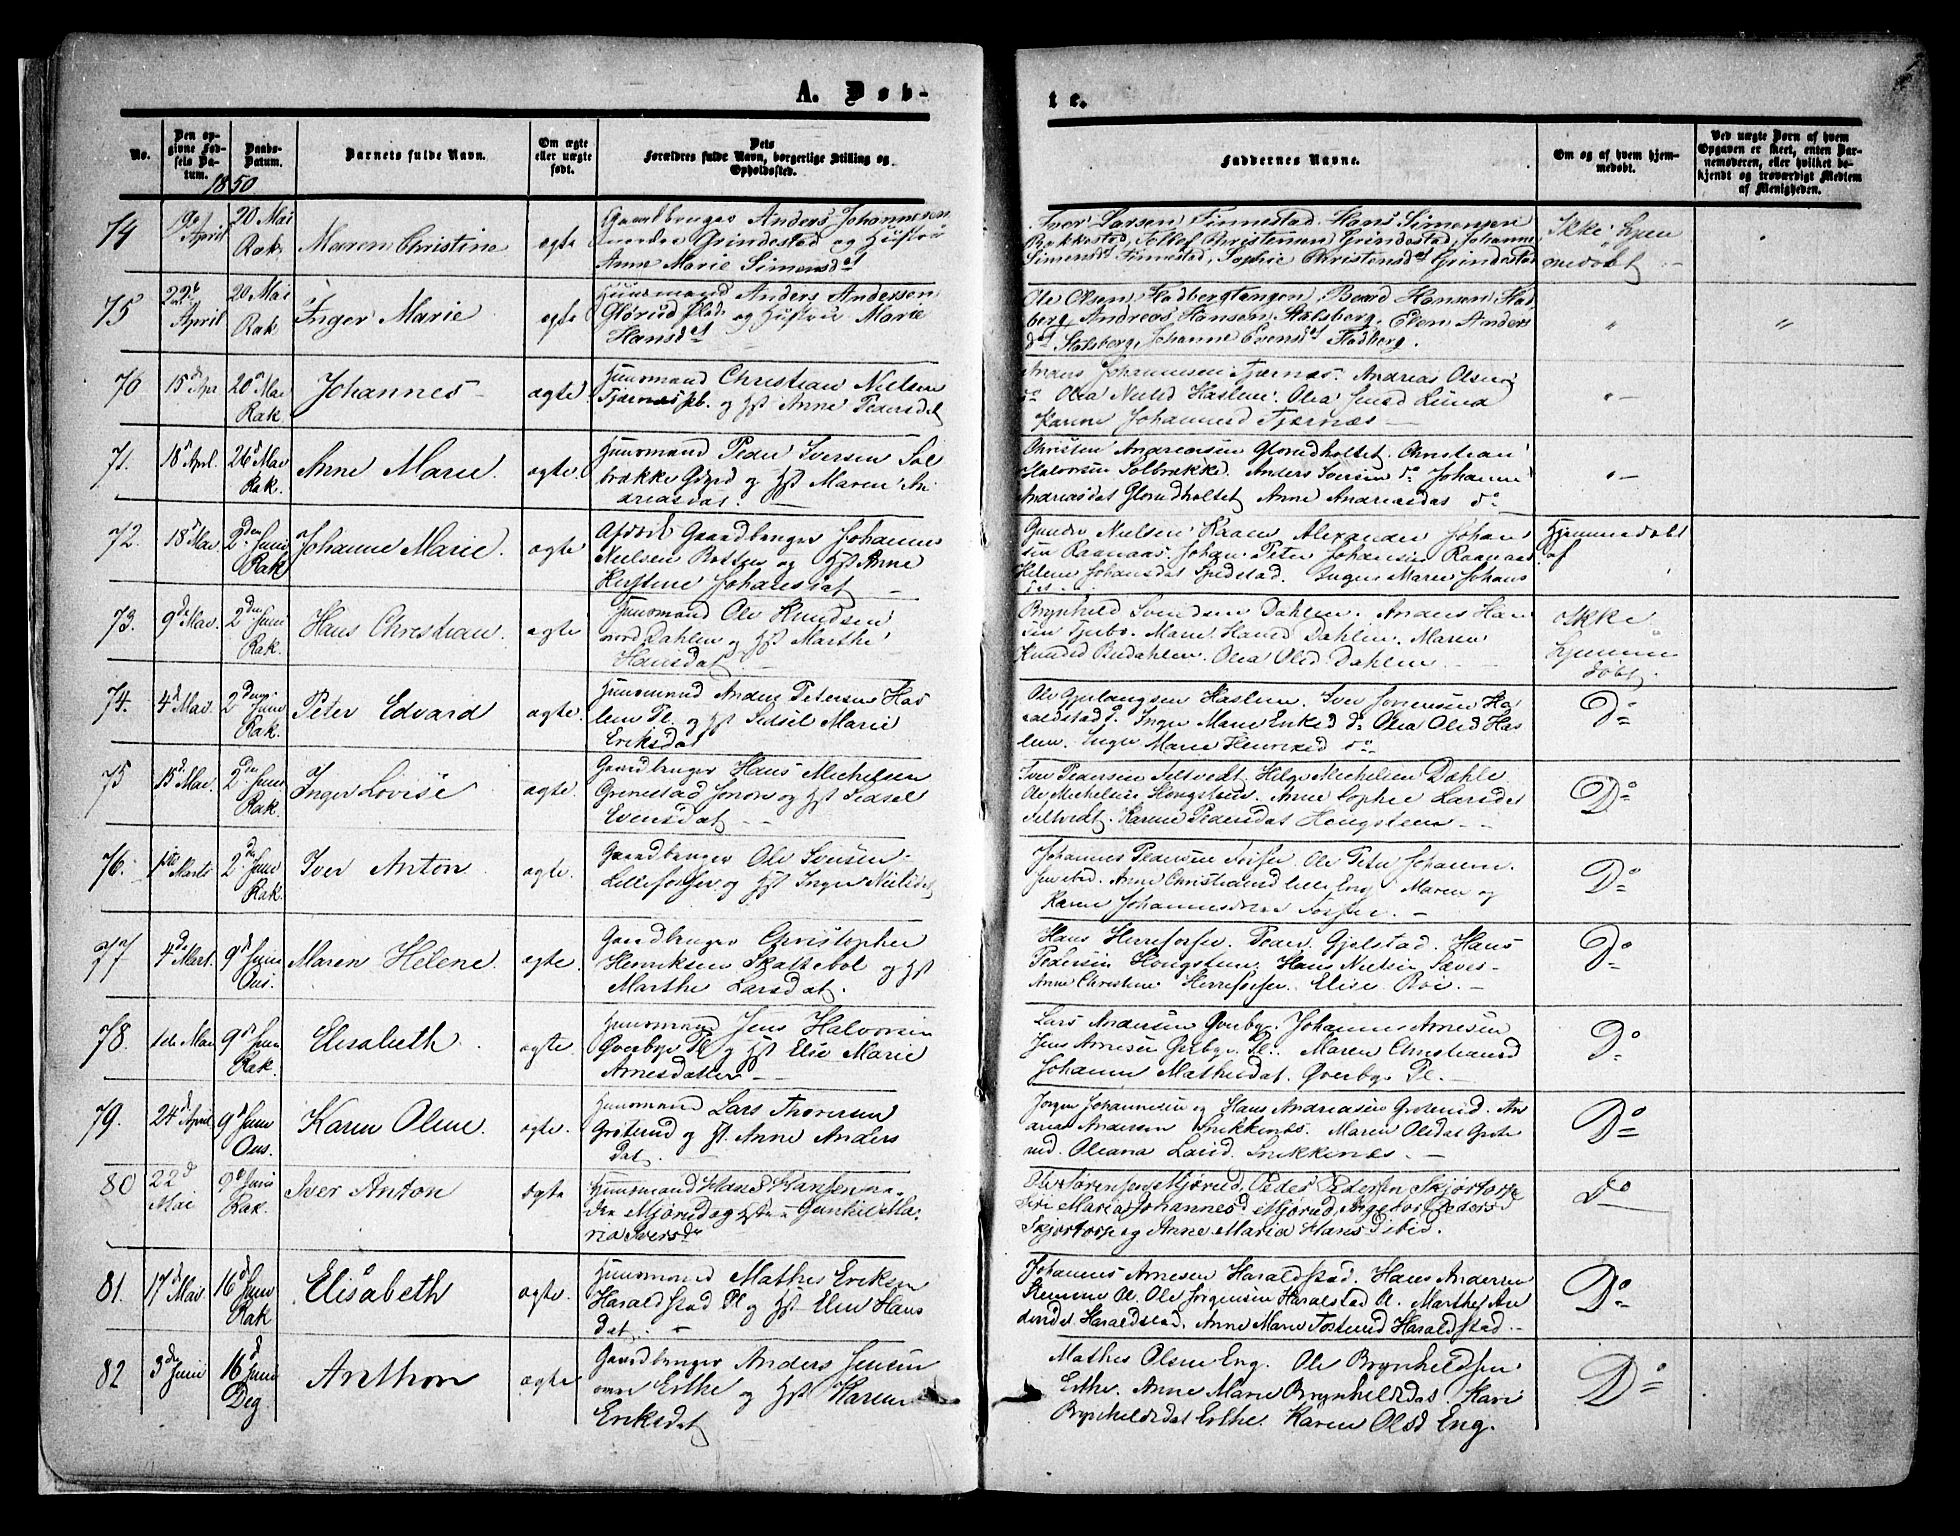 A. Døb-
te.
No.
Den op-
givne Fød-
sels Da-
tum.
Daabs-
Datum.
Barnets fulde Navn.
Om ægte
eller uægte
født.
Dets
Forældres fulde Navn, borgerlige Stilling og
Opholdssted.
Faddernes Navne.
Om og af hvem hjem-
medøbt.
Ved uægte Børn af hvem
Opgaven er skeet, enten Bar-
nemoderen, eller hvilket be-
kjendt og troværdigt Medlem
af Menigheden.
1850
74
April
20 Mai
Rak.
Maren Christine
ægte
Gaardbruger Anders Johannesen
nordre Grindestad og Hustru
Anne Marie Simensdat
Iver Larsen Finnestad. Hans Simensen
Bakkestad, Tollef Christensen Grindestad, Johanne
Simensd Finnestad, Sophie Christensdat Grindestad
Ikke hjem
medøbt
75
22de
April
20 Mai
Rak
Inger Marie
ægte
Huusmand Anders Andersen
Glørud Plds og Hustru Marie
Hansdat
Ole Olsen Stadbergtangen, Baard Hansen Stad
berg, Andreas Hansen Stalsberg, Elen Anders
dat Stalsberg, Johanne Evensdat Stadberg.
"
"
76
15d Apr
20d Mai
Rak.
Johannes
ægte
Huusmand Christian Nielsen
Tjærnæs pl. og Hst Anne Pedersdat
Anders Johannesen Tjærnæs. Andreas Olsen
do Olea Nielsd Haslene. Olea Lund
Karen Johannesd Tjærnæs
" -
71.
18d Apl.
26d Mai
Rak.
Anne Marie
ægte.
Huusmand Peder Iversen Sol
brække Grd og Hst Maren An
dreasdat.
Christen Andreassen Glorudholtet. Christian
Halvorsen Solbrække. Anders Iversen do Johanne
Andreasdat Glorudholtet Anne Andreasdat do
" -
72.
18d Mai
2den Juni
Rak
Johanne Marie
ægte
Gaardbruger Johannes
Nielsen og Hst Anne
Kirstine Johansdat
Gunder Nielsen Raanaas Alexander Johan
sen Raanaas. Johan Peter Johansen Raanaas
Helene Johansdat. Inger Marie Johans
Hjemmedøbt
af
73.
9de Mai.
2den Juni
Rak.
Hans Christian
ægte
Huusmand Ole Knudsen
nord Dahlen og Hst Marthe
Hansdat
Brynhild Svendsen Dahlen. Anders Han
sen Tjubo. Marie Hansd Dahlen. Maren
Knudsd Dahlen. Olea Olsd Dahlen
Ikke
hjemme
døbt.
74.
4d Mai
2den Juni
Rak.
Peter Edvard
ægte
Huusmand Anders Petersen Has
lem Pl. og Hst Sidsel Marie
Eriksdat
Ole Haslem. Iver Jonsen Ha
raldstad. Inger Marie do Olea Olsd Has
lem. Inger Marie Henriksd do
Do
75
15d Mai.
2den Juni
Rak.
Inger Lovise
ægte.
Gaardbruger Hans Michelsen
Grenestad og Hst Sidsel
Evensdat
Iver Pedersen Seltvedt. Helge Michelsen Dahle
Ole Michelsen Hougsteen. Anne Sophie Larsdat
Seltvedt. Karen Pedersdat Hougsteen
Do
76.
1ste Marts
2den Juni
Rak.
Iver Anton
ægte.
Gaardbruger Ole Iversen
Lilleforfer og Hst Inger Nielsdat
Johannes Pedersen. Ole Peter Johann
sen ibid. Anne Christiansd lille Eng Maren og
Karen
Do
77
4de Mart.
9d Juni
Ous.
Maren Helene
ægte.
Gaardbruger Christopher
Henriksen Skattebøl og Hst
Marthe Larsdat.
Hans Herreforfer. Peder Gjelstad. Hans
Pedersen Hougsteen. Hans Nielsen.
Anne Christine Herreforfer. Elise
Do
78.
1de Mai
9d Juni
Rak.
Elisabeth
ægte.
Huusmand Jens Halvorsen
Øverbye Pl og Hst Elie Marie
Arnesdatter
Lars Andersen Øverby. Johannes Arnesen
Jens Arnesen Øverbye Pl. Maren Christiansd
Johanne Mathisdat. Øverby Pl.
Do
79.
24d April
9d Juni
Ous.
Karen Oline.
ægte.
Huusmand Lars Thoresen
Grøterud og H. Anne Anders
dat.
Jørgen Johannesen og Hans Andreasen Grøterud. An
dreas Andersen Snekkenæs. Maren Olsdat Grøte
rud. Oleana Larsd. Snekkenæs.
Do
80
22d
Mai
9d Juni
Rak.
Iver Anton
ægte
Huusmand Hans Hansen ne-
dre Mjørud og Hustru Gunhild Ma-
ria Iversdr
Ole Sørensen Mjørud, Peder Pedersen Skjørtorp
Siri Maria Johannesd Mjørud, Ingeborg Pedersd
Skjørtorp og Anne Maria Hansd ibid.
Do
81.
17d Mai
16d Juni
Rak
Elisabeth
ægte.
Huusmand Mathis Eriksen
Haraldstad Pl og Hst Elen Hans
dat.
Johannes Arnesen Haraldstad. Hans Andersen
Stemme. Ole Jørgensen Haralstad. Marthe An
dersdat Haraldstad. Anne Marie Haraldstad.
Do
82
3die Juni
16d Juni
Deg
Anthon
ægte
Gaardbruger Anders Jensen
Erthe og Hst Karen
Eriksdat
Mathis Olsen Eng. Ole Brynhildsen
Erthe. Anne Marie Brynhildsdat. Kari
Brynhildsdat Erthe. Karen Olsd Eng.
Do